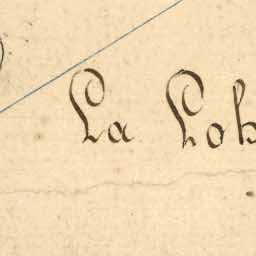 La Lob